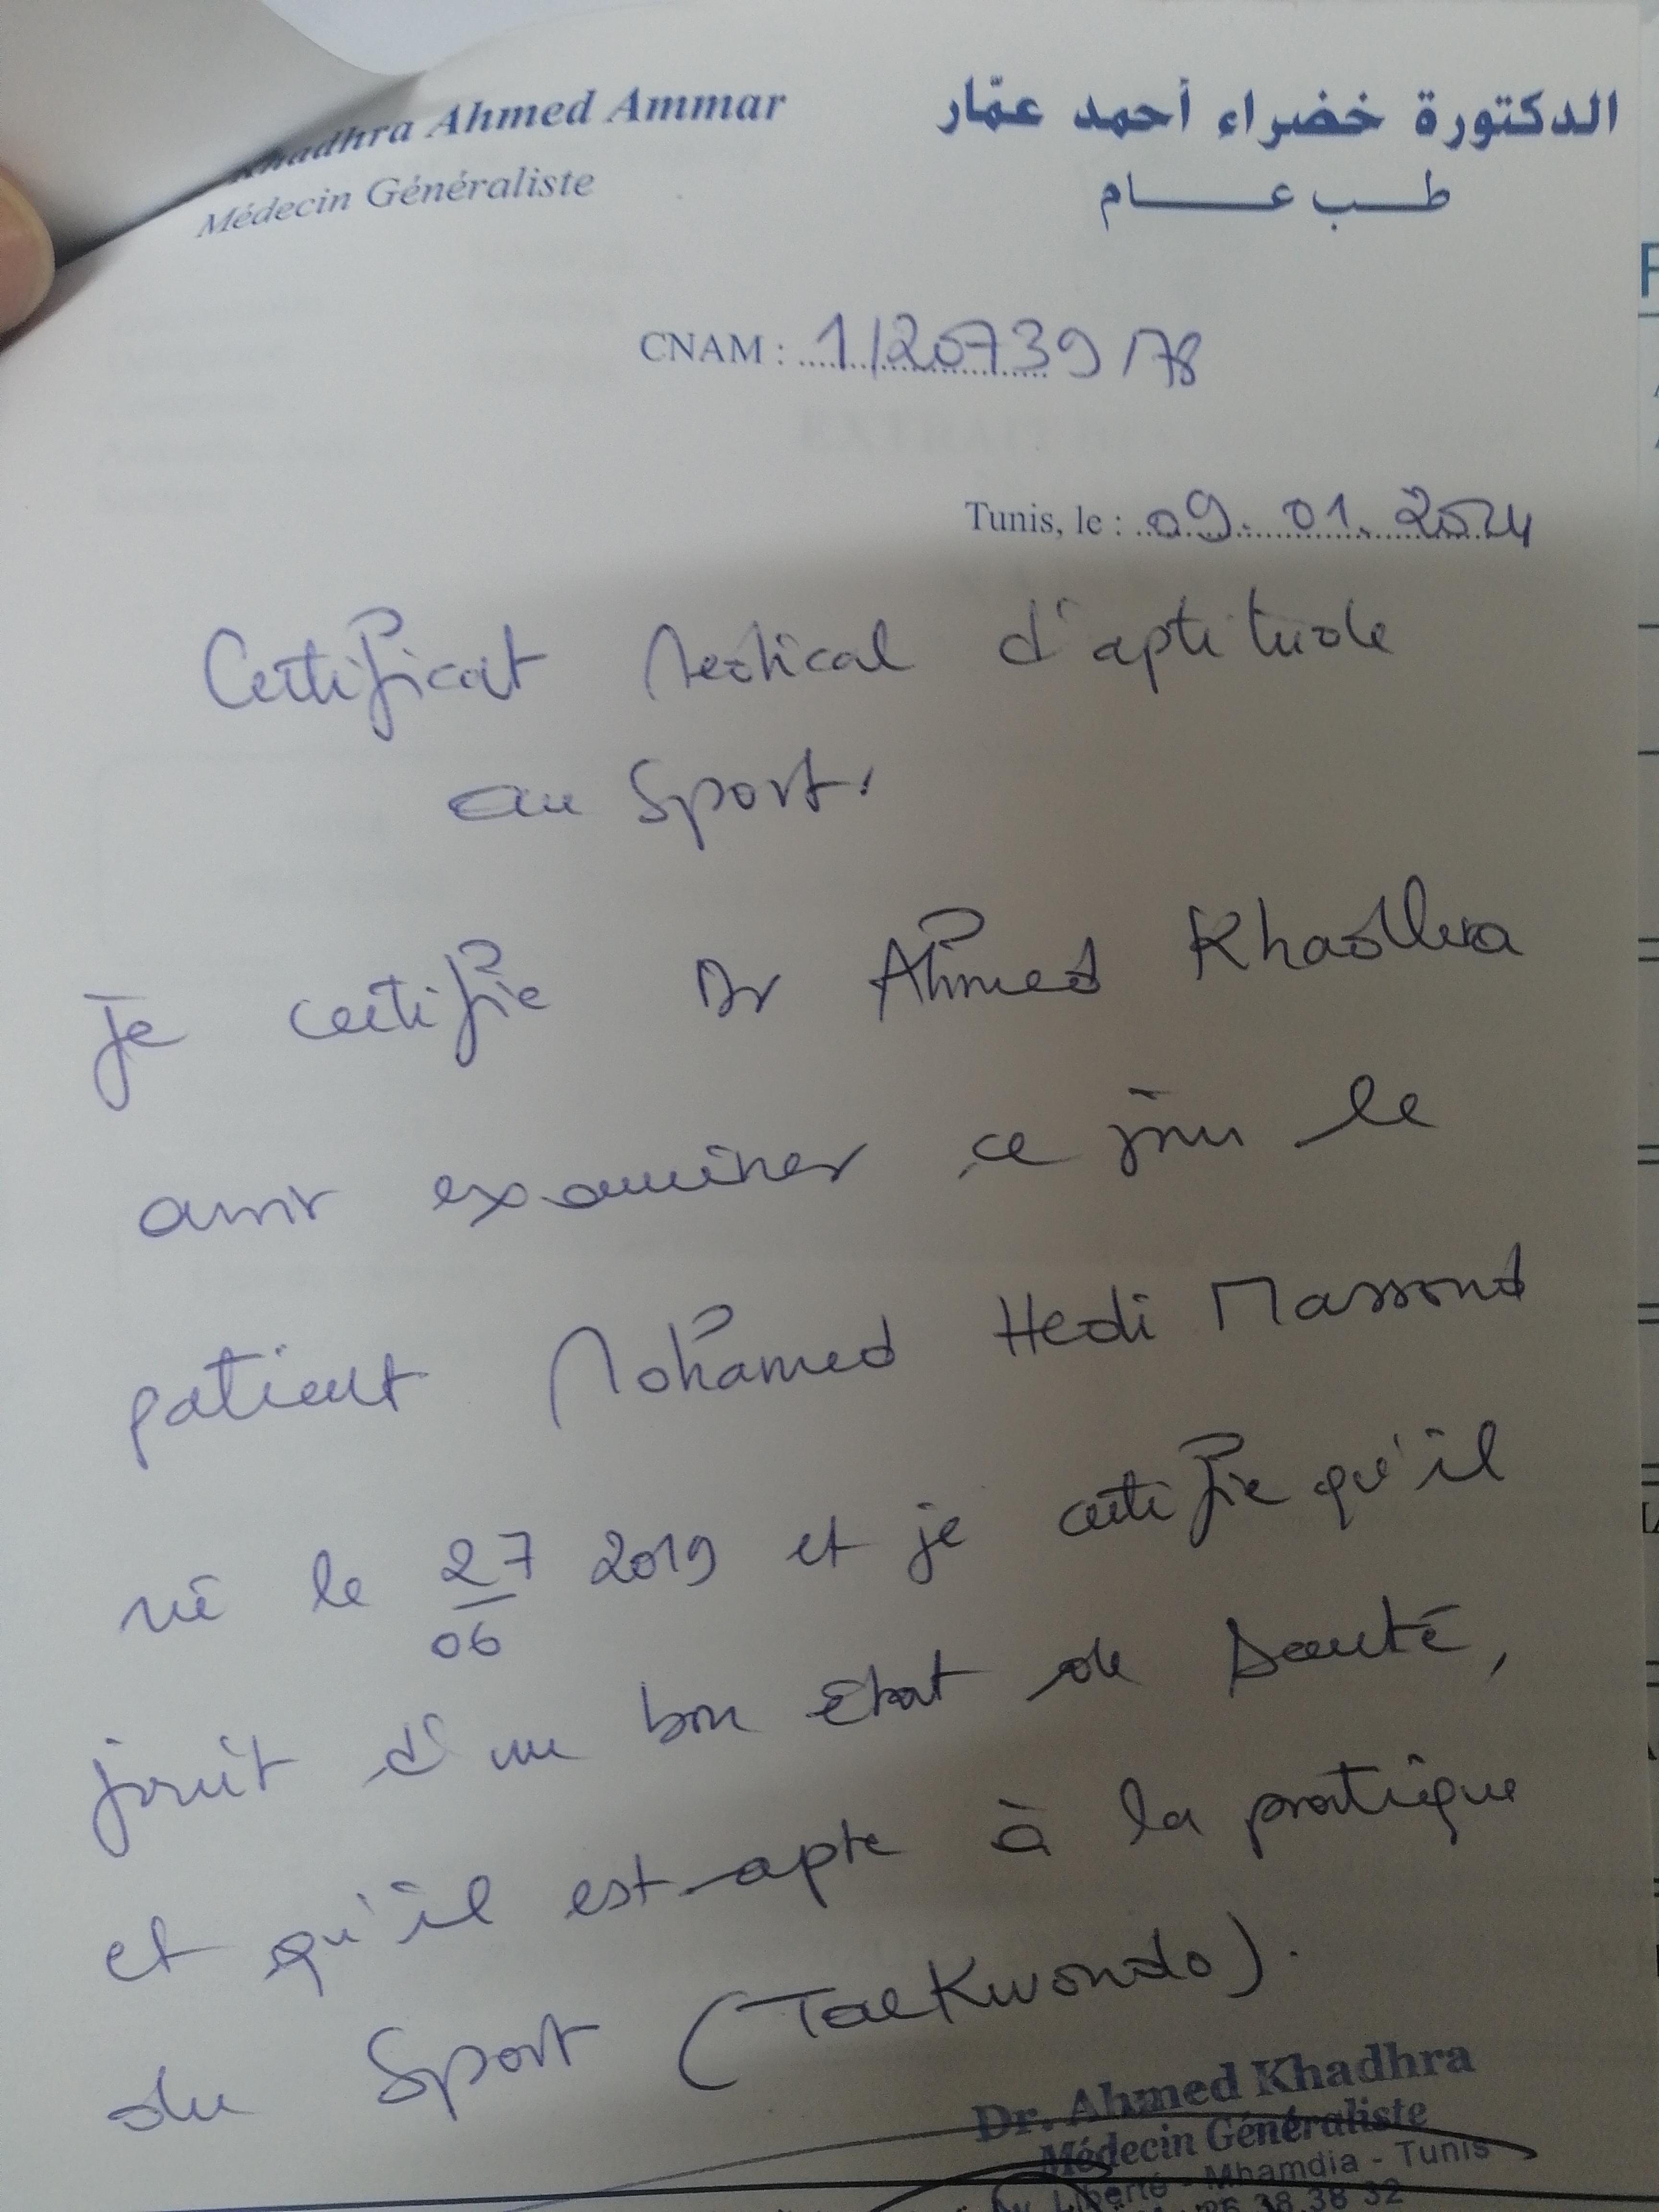 Khadhra Ahmed Ammar
Médecin Généraliste
الدكتورة خضراء أحمد عمّار
طب عام
CNAM : 1/20739/78
Tunis, le : 09. 01. 2024
Certificat Medical d'aptitude
au Sport.
je certifie Dr Ahmed Khadhra
avoir examiner ce jour le
patient Mohamed Hedi Massoud
né le 27/06 2019 et je certifie qu'il
jouit d'un bon état de santé,
et qu'il est apte à la pratique
du Sport (TaeKwondo).
Dr. Ahmed Khadhra
Médecin Généraliste
Av. Liberté - Mhamdia - Tunis
38 38 32